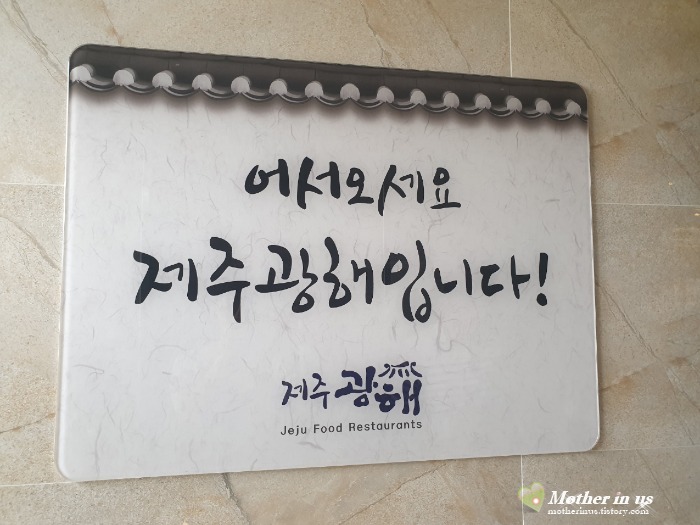 어서오세요
제주광해입니다!
제주 광해
Jeju Food Restaurants
Mother in us
motherinus.tistory.com